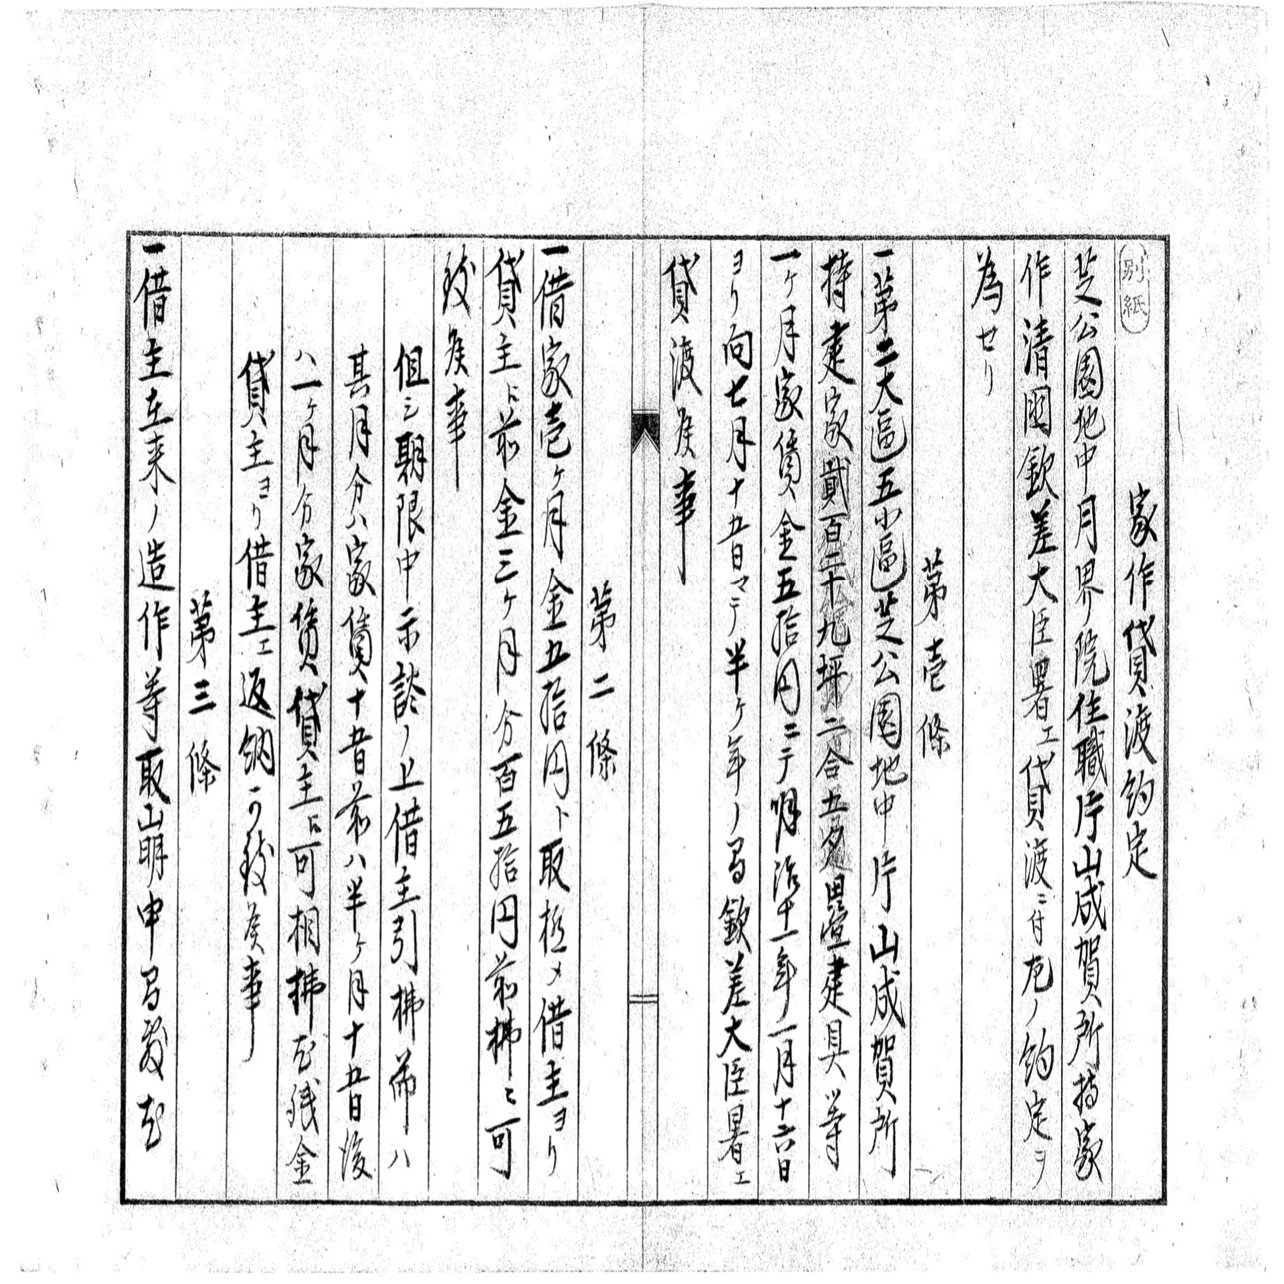 別紙
家作貸渡約定
芝公園地中月界院住職片山成賀所持家
作清国欽差大臣署エ貸渡ニ付左ノ約定ヲ
為セリ
第壱條
一第二大區五小區芝公園地中片山成賀所
持建家貳百二十九坪二合五夕畳建具等
一ケ月家賃金五拾円ニテ明治十一年一月十六日
ヨリ向七月十五日マテ半ケ年ノ間欽差大臣署エ
貸渡候事
第二條
一借家壱ケ月金五拾円ト取極メ借主ヨリ
貸主ヘ前金三ケ月分百五拾円前拂ニ可
致候事
但シ期限中示談ノ上借主引拂節ハ
其月分ハ家賃十五日前ハ半ケ月十五日後
ハ一ケ月分家賃貸主ヘ可相拂尤残金
貸主ヨリ借主エ返納可致候事
第三條
一借主在来ノ造作等取山明申間敷尤